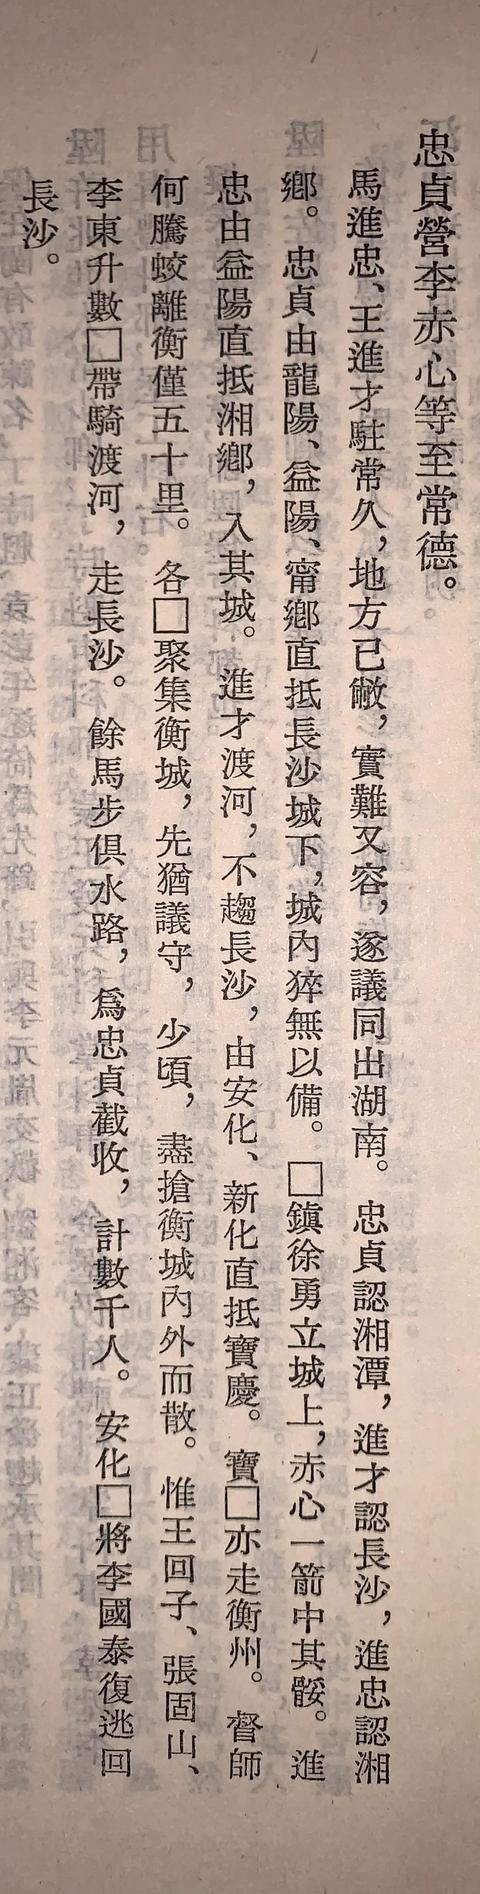 忠貞營李赤心等至常德。
馬進忠、王進才駐常久，地方已敝，實難又容，遂議同出湖南。忠貞認湘潭，進才認長沙，進忠認湘
鄉。忠貞由龍陽、益陽、甯鄉直抵長沙城下，城內猝無以備。□鎮徐勇立城上，赤心一箭中其骽。進
忠由益陽直抵湘鄉，入其城。進才渡河，不趨長沙，由安化、新化直抵寶慶。寶□亦走衡州。督師
何騰蛟離衡僅五十里。各□聚集衡城，先猶議守，少頃，盡搶衡城內外而散。惟王回子、張固山、
李東升數□帶騎渡河，走長沙。餘馬步俱水路，爲忠貞截收，計數千人。安化□將李國泰復逃回
長沙。